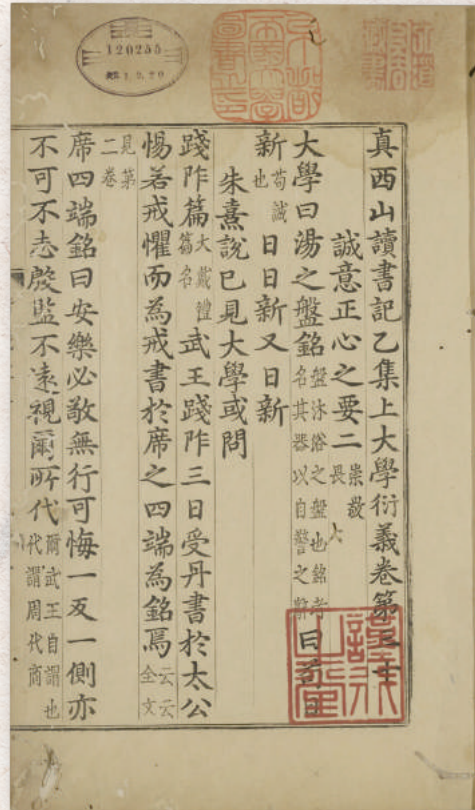 120255
1.9.20
真西山讀書記乙集上大學衍義卷第三十
誠意正心之要二崇敬畏
大學曰湯之盤銘盤沐浴之盤也銘者名其器以自警之辭曰苟日
新苟誠也日日新又日新
朱熹說已見大學或問
踐阼篇大戴禮篇名武王踐阼三日受丹書於太公
惕若戒懼而為戒書於席之四端為銘焉云云全文
見第二卷
席四端銘曰安樂必敬無行可悔一反一側亦
不可不志殷監不遠視爾所代爾武王自謂也代謂周代商